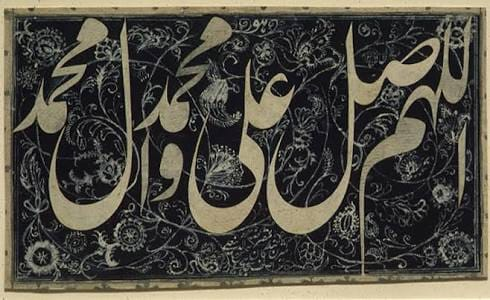 هو
اللهم صل على محمد وال محمد